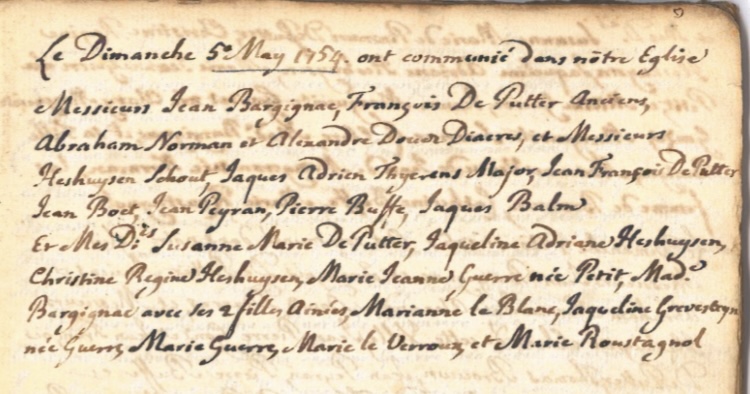 Le Dimanche 5e May 1754. ont communié dans nôtre Eglise
Messieurs Jean Bargignac, François De Putter Anciens,
Abraham Norman et Alexandre Douw Diacres, et Messieurs
Heshuysen Schout, Jaques Adrien Thyerens Major, Jean François De Putter
Jean Boet, Jean Peyran, Pierre Buffe, Jaques Balme
Et Mes Dlles Susanne Marie De Putter, Jaqueline Adriane Heshuysen,
Christine Regine Heshuysen, Marie Jeanne Guerre née Petit, Made
Bargignac avec ses 2 filles Ainées, Marianne le Blanc, Jaqueline Grevesteyn
née Guerre, Marie Guerre, Marie le Verroux, et Marie Roustagnol